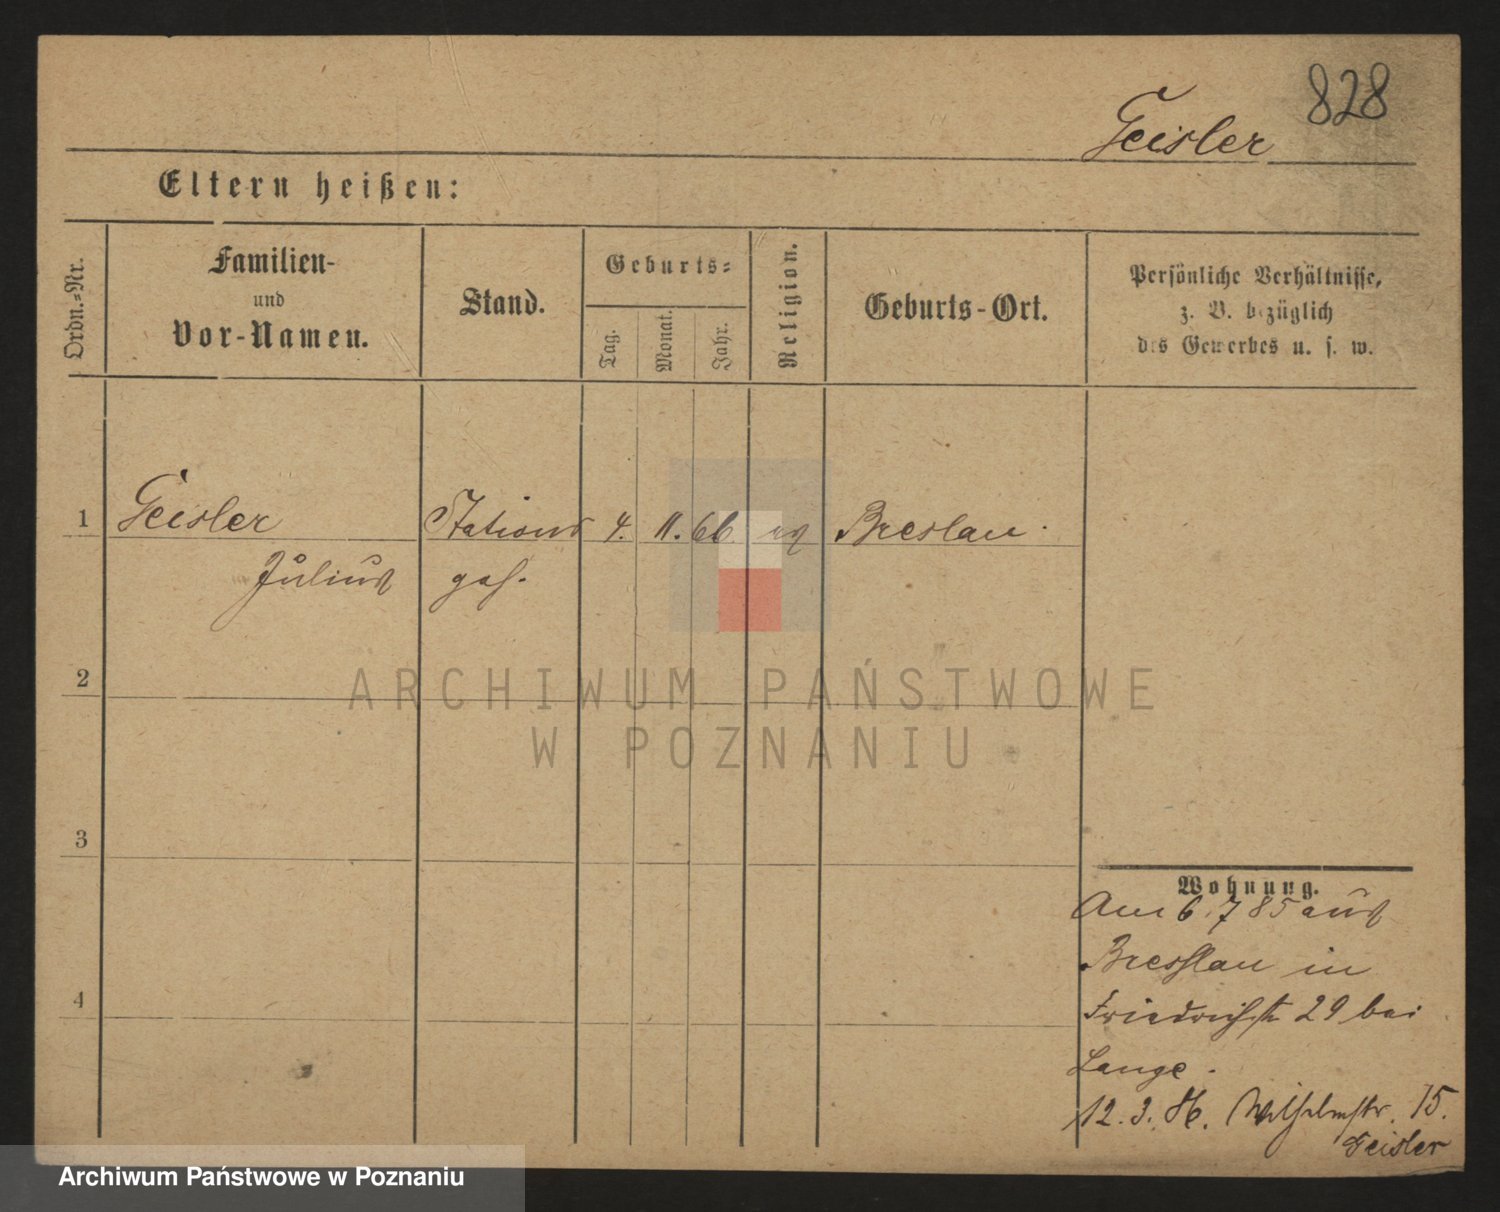 828
Geisler
Eltern heißen:
Ordn.=Nr.
Familien-
und
Vor-Namen.
Stand.
Geburts=
Tag.
Monat.
Jahr.
Religion.
Geburts-Ort.
Persönliche Verhältnisse,
z. B. bezüglich
des Gewerbes u. s. w.
1
Geisler
Stations
4.
11.
66
ev
Breslau.
Julius
geh.
2
ARCHIWUM PAŃSTWOWE
W POZNANIU
3
Wohnung.
Am 6.7 85 aus
Bresslau in
4
Friedrichstr 29 bei
Lange.
12. 3. 86. Wilhelmstr. 15.
Geisler
Archiwum Państwowe w Poznaniu